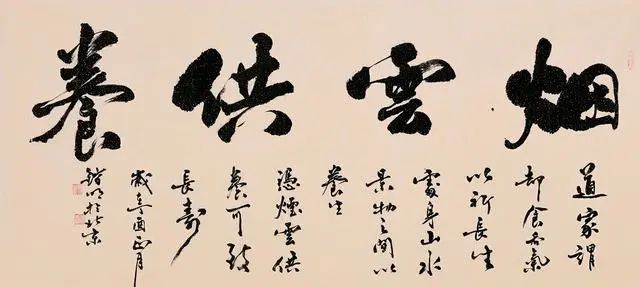 烟雲供養
道家謂
却食吞氣
以祈長生
處身山水
景物之間以
養生
憑煙雲供
養可致
長壽
歲辛酉正月
於北京